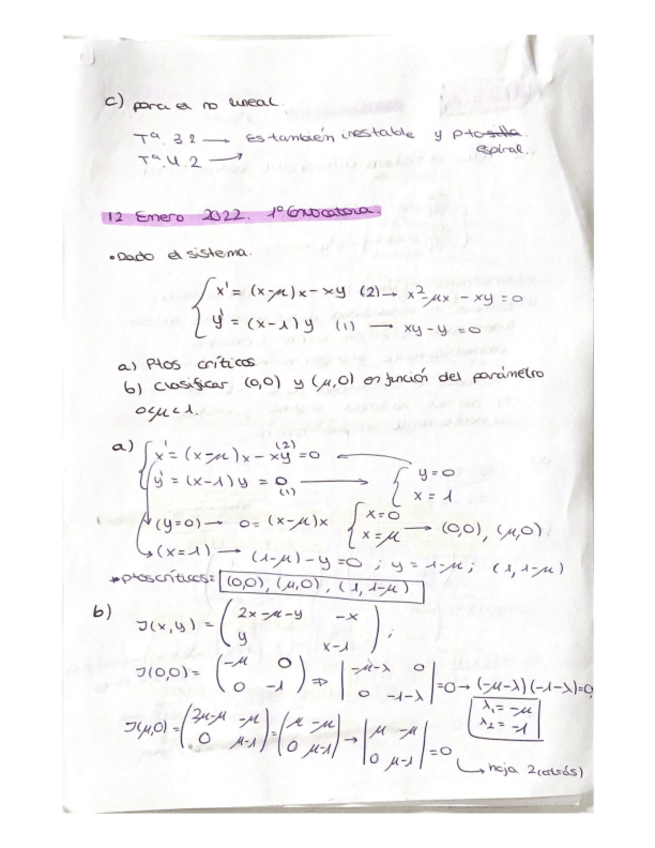 c) para el no lineal.
Tª. 3.2 → Es también inestable y pto silla
Tª. 4.2 → espiral.
12 Enero 2022. 1º Convocatoria.
• Dado el sistema.
{ x' = (x-μ)x - xy (2) → x² - μx - xy = 0
y' = (x-1)y (1) → xy - y = 0
a) Ptos críticos
b) Clasificar (0,0) y (μ,0) en función del parámetro
0<μ<1.
a) { x' = (x-μ)x - xy = 0 (2)
y' = (x-1)y = 0 (1) → { y=0
x = 1
(y=0) → 0 = (x-μ)x { x=0
x=μ → (0,0), (μ,0)
(x=1) → (1-μ) - y = 0 ; y = 1-μ ; (1, 1-μ)
ptos críticos: (0,0), (μ,0), (1, 1-μ)
b) J(x,y) = ( 2x-μ-y -x
y x-1 ) ;
J(0,0) = ( -μ 0
0 -1 ) ⇒ | -μ-λ 0
0 -1-λ | = 0 → (-μ-λ)(-1-λ)=0
λ₁ = -μ
λ₂ = -1
J(μ,0) = ( 2μ-μ -μ
0 μ-1 ) = ( μ -μ
0 μ-1 ) → | μ -μ
0 μ-1 | = 0
↳ hoja 2 (atrás)